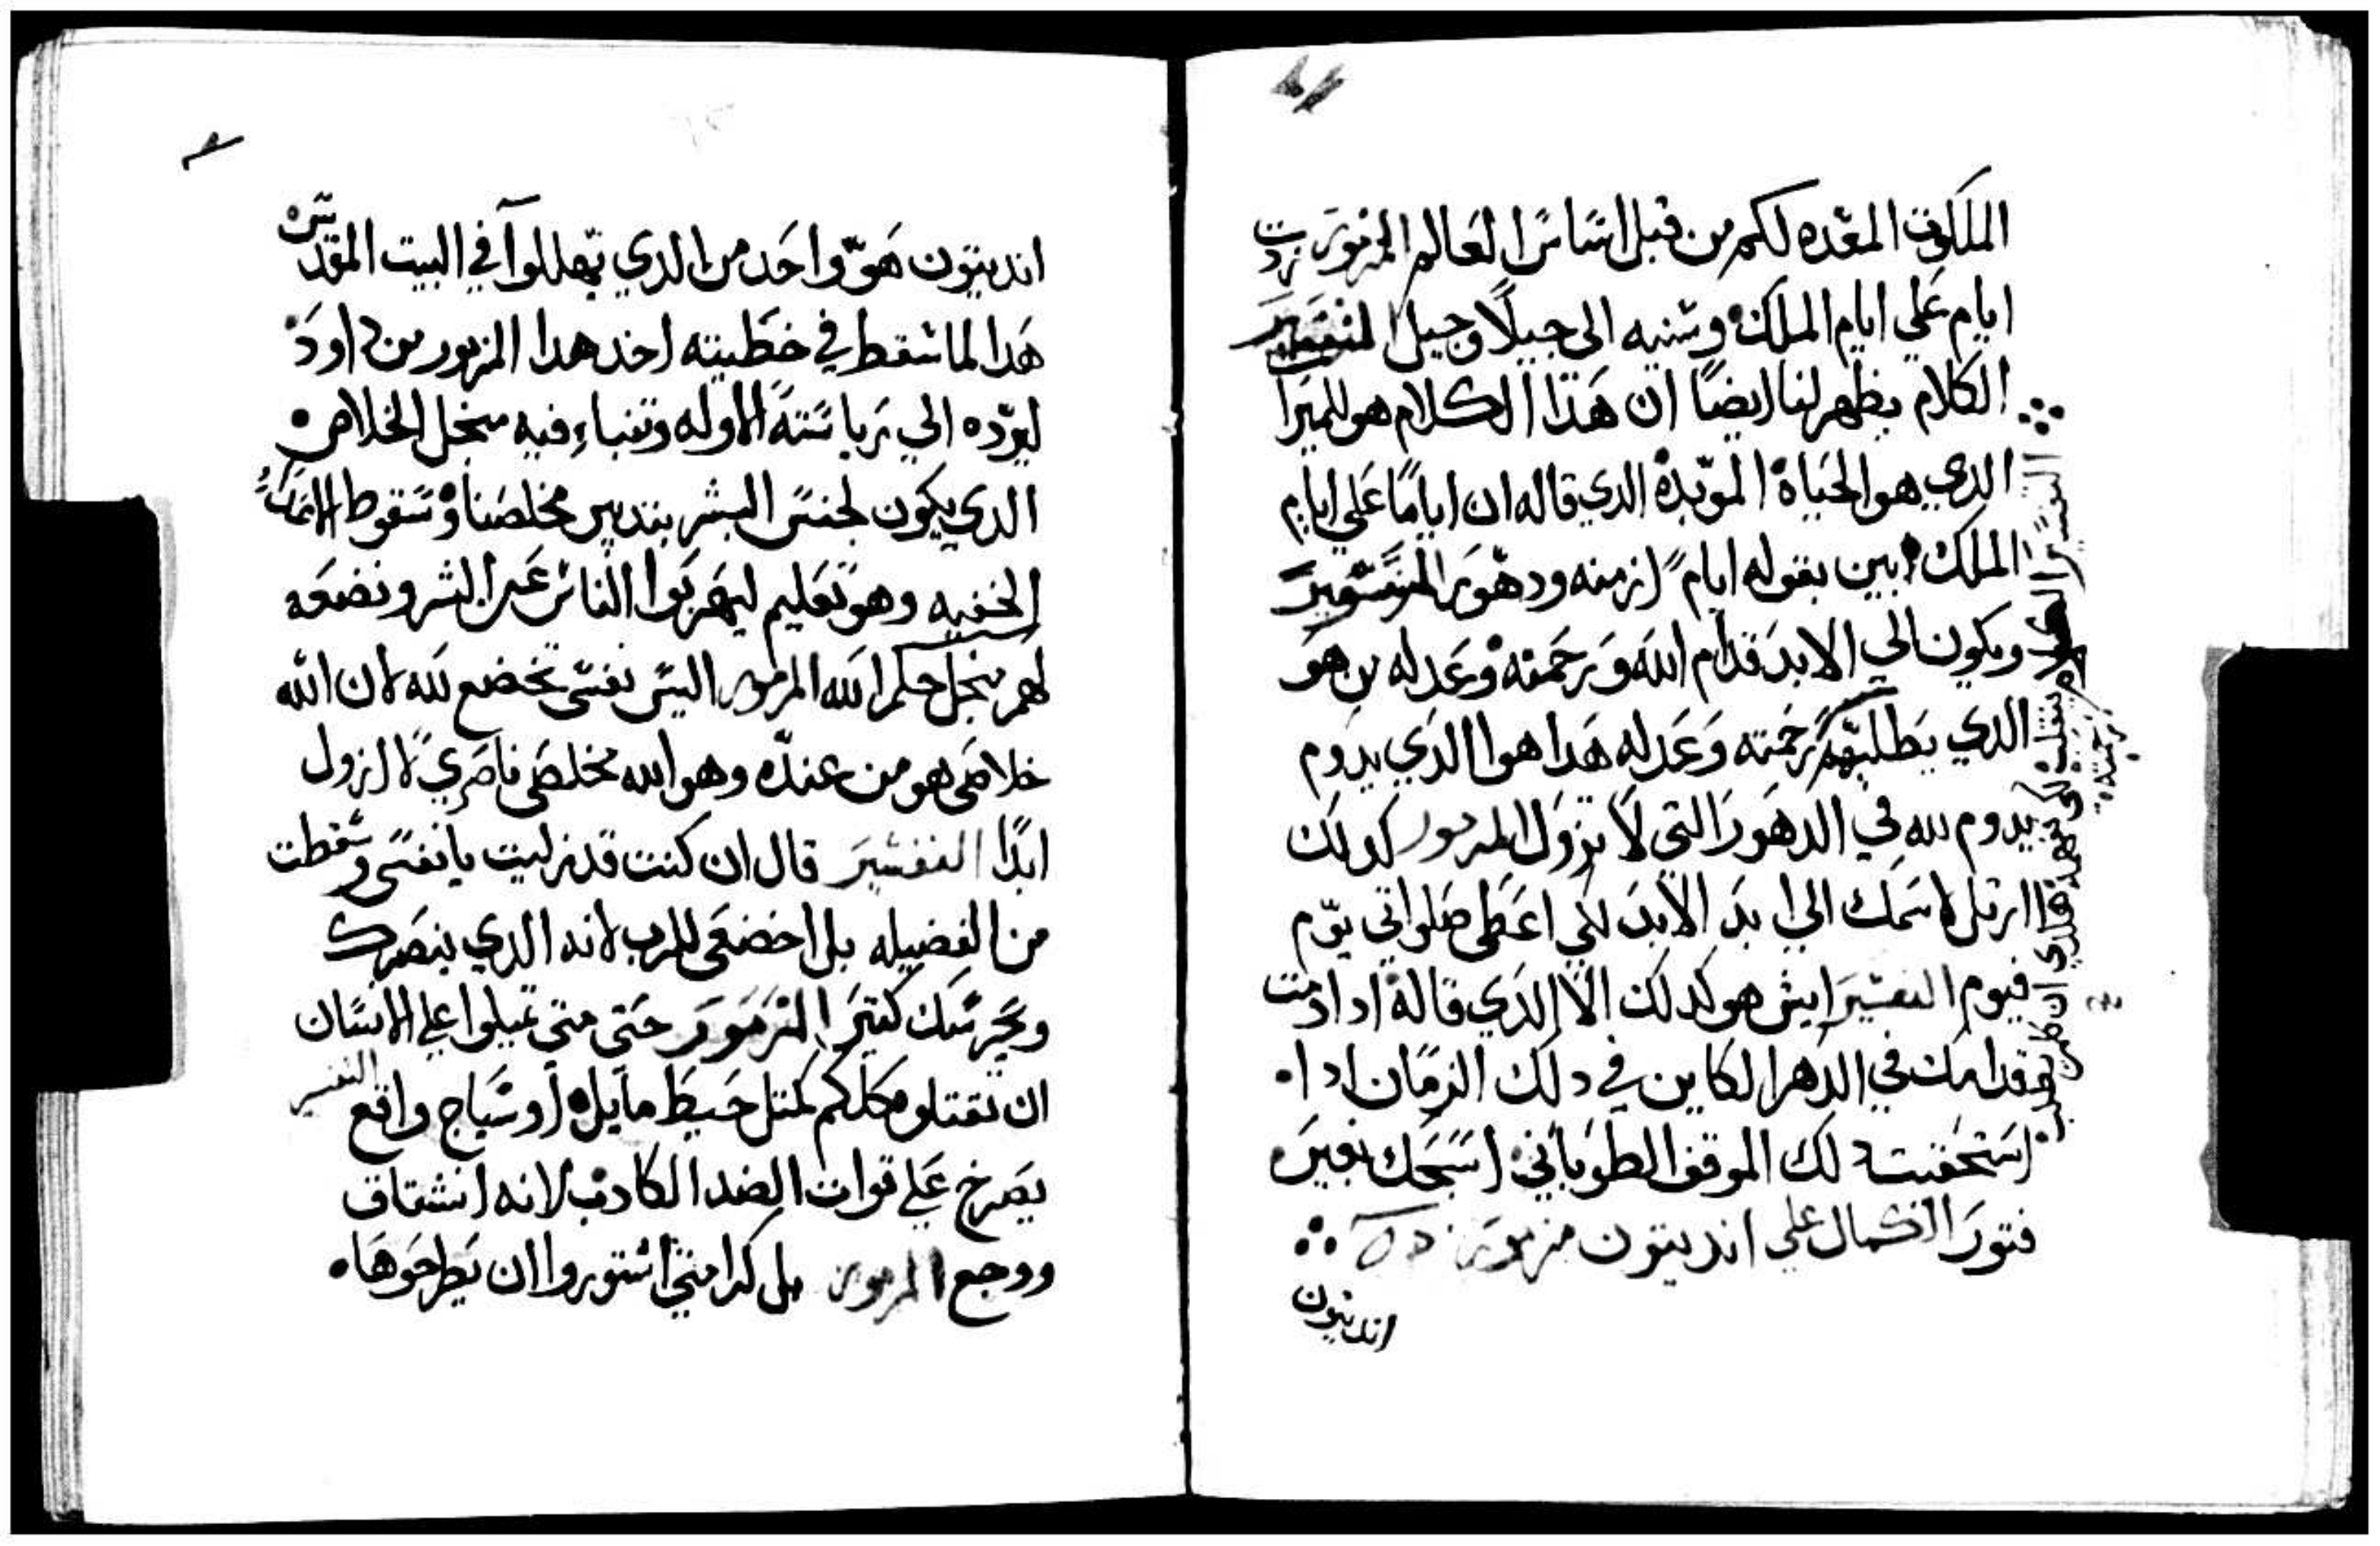 الملكوت المعده لكم من قبل اساس العالم المزمور زد
ايام علي ايام الملك وسنيه الي جيلاً وجيل التفسير
الكلام يظهر لنا ايضاً ان هذا الكلام هو للميرا
الدي هو الحياة الموبدة الدي قاله ان اياماً علي ايام
الملك بين بقوله ايام ازمنه ودهور المزمور
ويكون الي الابد قدام الله ورحمته وعدله من هو
الدي يطلبهم رحمته وعدله هدا هوا الدي يدوم
يدوم لله في الدهور التي لا تزول المزمور كدلك
ارتل لاسمك الي ابد الابد لكي اعطي صلواتي يوم
فيوم التفسير ايش هو كدلك الا الدي قاله ادا دمت
قدامك في الدهر الكاين في دلك الزمان ادا
استحقيت دلك الموقف الطوباني اسبحك بغير
فتور الكمال علي انديتون مزمور
انديتون
انديتون هو واحد من الدي تهللوا في البيت المقدس
هدا لما سقط في خطيته اخد هدا المزمور من داود
ليوده الي رياسته الاوله وتنباء فيه منجل الخلاص
الدي يكون لجنس البشر بتدبير مخلصنا وسقوط الاعدا
الخفيه وهو تعليم ليهربوا الناس عن الشر ونضعه
لهم منجل حكم الله المزمور اليس نفسي تخضع لله لان الله
خلاصي هو من عنده وهو الله مخلصي ناصري لا ازول
ابدًا التفسير قال ان كنت قد زليت يا نفسي وسقطت
من الفضيله بل اخضعي للرب لانه الدي ينصرك
ويحرسك كتير المزمور حتي متي تميلوا علي الانسان
ان تقتلوه كلكم كمتل حيط مايل او سياج واقع التفسير
يصرخ علي قوات الضد الكادب لانه انشقاق
ووجع المزمور بل كرامتي اشتوروا ان يطرحوها